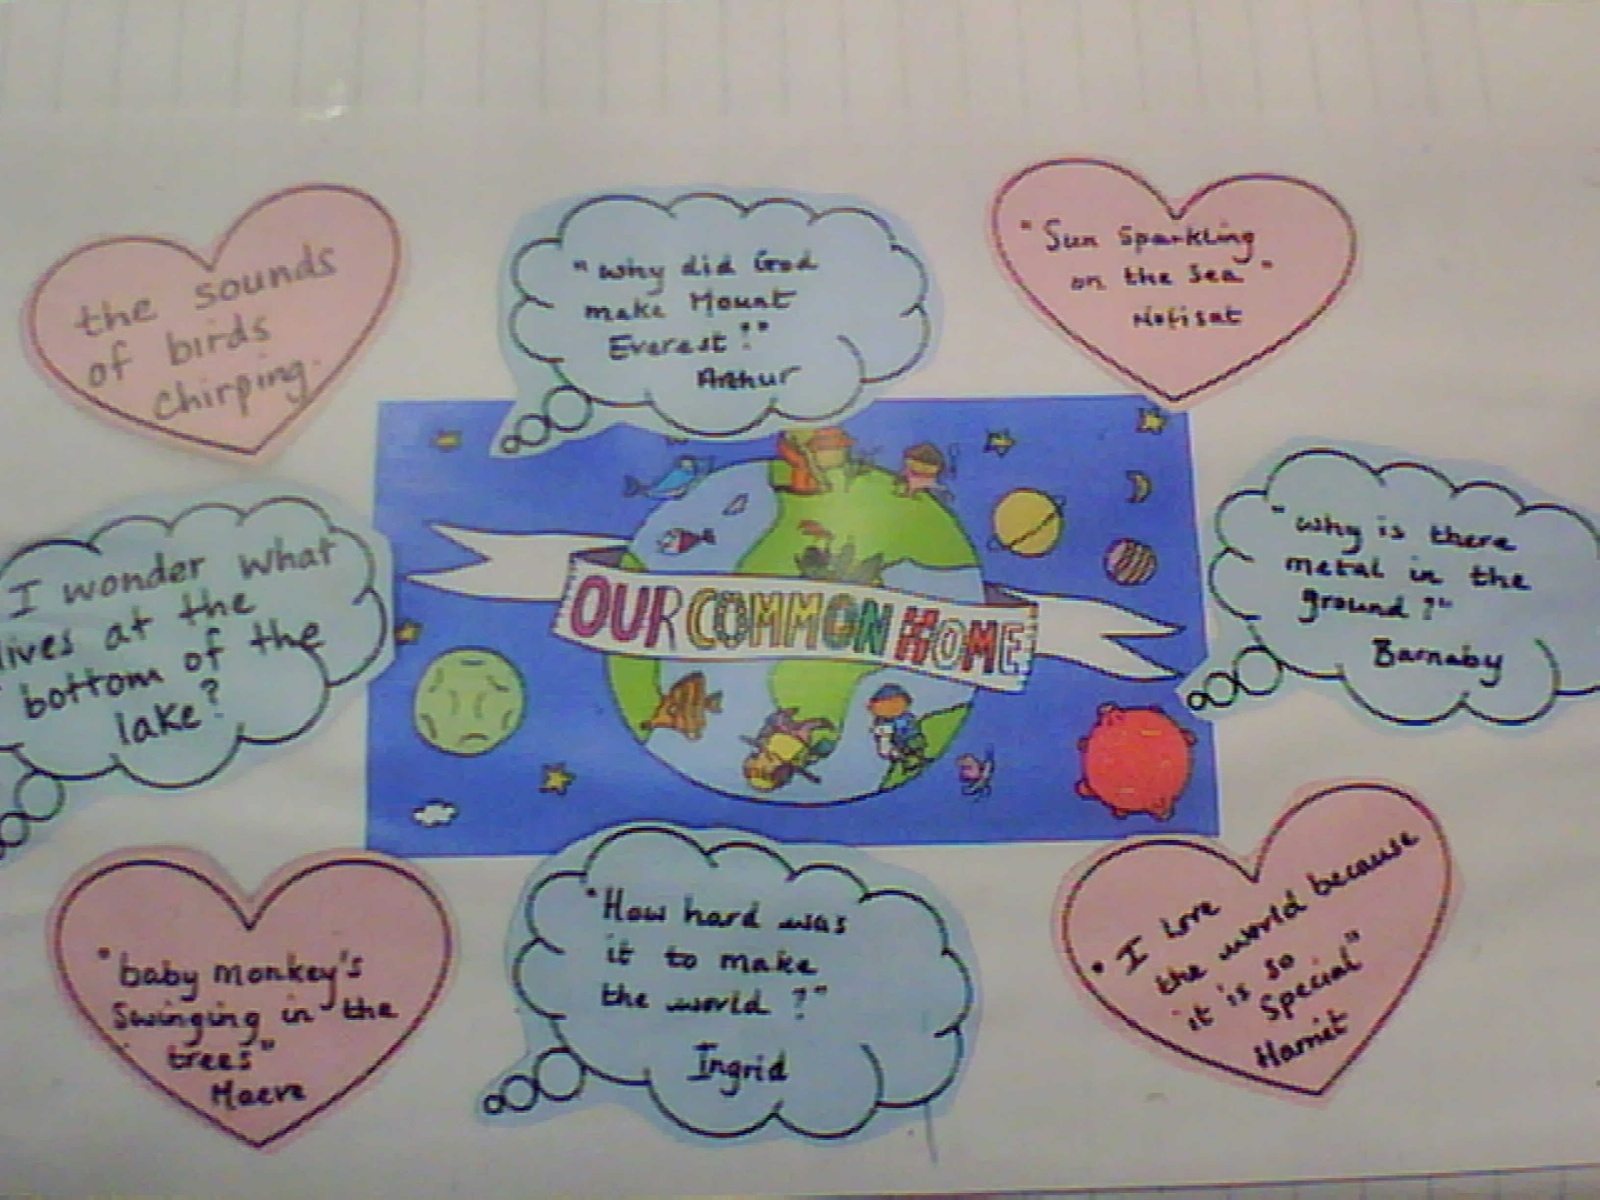 the sounds
of birds
chirping.
"why did God
make Mount
Everest?"
Arthur
"Sun Sparkling
on the Sea"
Nofisat
I wonder what
lives at the
bottom of the
lake?
OUR COMMON HOME
"why is there
metal in the
ground?"
Barnaby
"baby monkey's
Swinging in the
trees"
Maeve
"How hard was
it to make
the world?"
Ingrid
"I love
the world because
it is so
Special"
Harriet